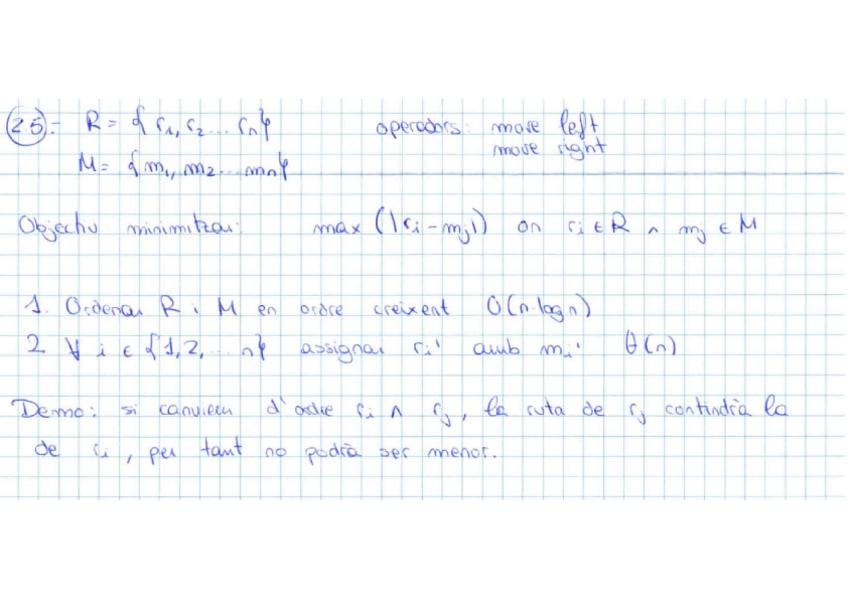 25.- R = { r1, r2 ... rn } operadors: move left
move right
M = { m1, m2 ... mn }
Objectiu minimitzar: max (|ri - mj|) on ri ∈ R ∧ mj ∈ M
1. Ordenar R i M en ordre creixent O(n·logn)
2 ∀ i ∈ {1,2,... n} assignar ri' amb mi' θ(n)
Demo: si canviem d'ordre ri ∧ rj, la ruta de rj contindrà la
de ri, per tant no podrà ser menor.